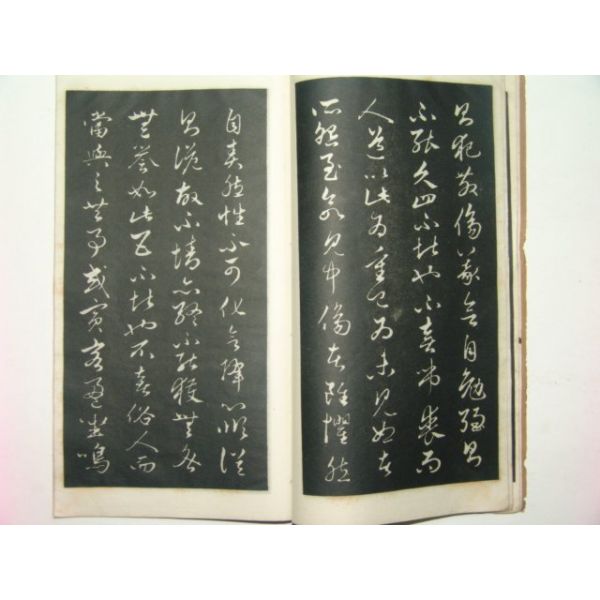 則犯教傷義欲自勉強則
不能久四不堪也不喜弔喪而
人道以此為重已為未見恕者
所怨至欲見中傷者雖懼然
自責然性不可化欲降心順俗
則詭故不情亦終不能獲無咎
無譽如此五不堪也不喜俗人而
當與之共事或賓客盈坐鳴